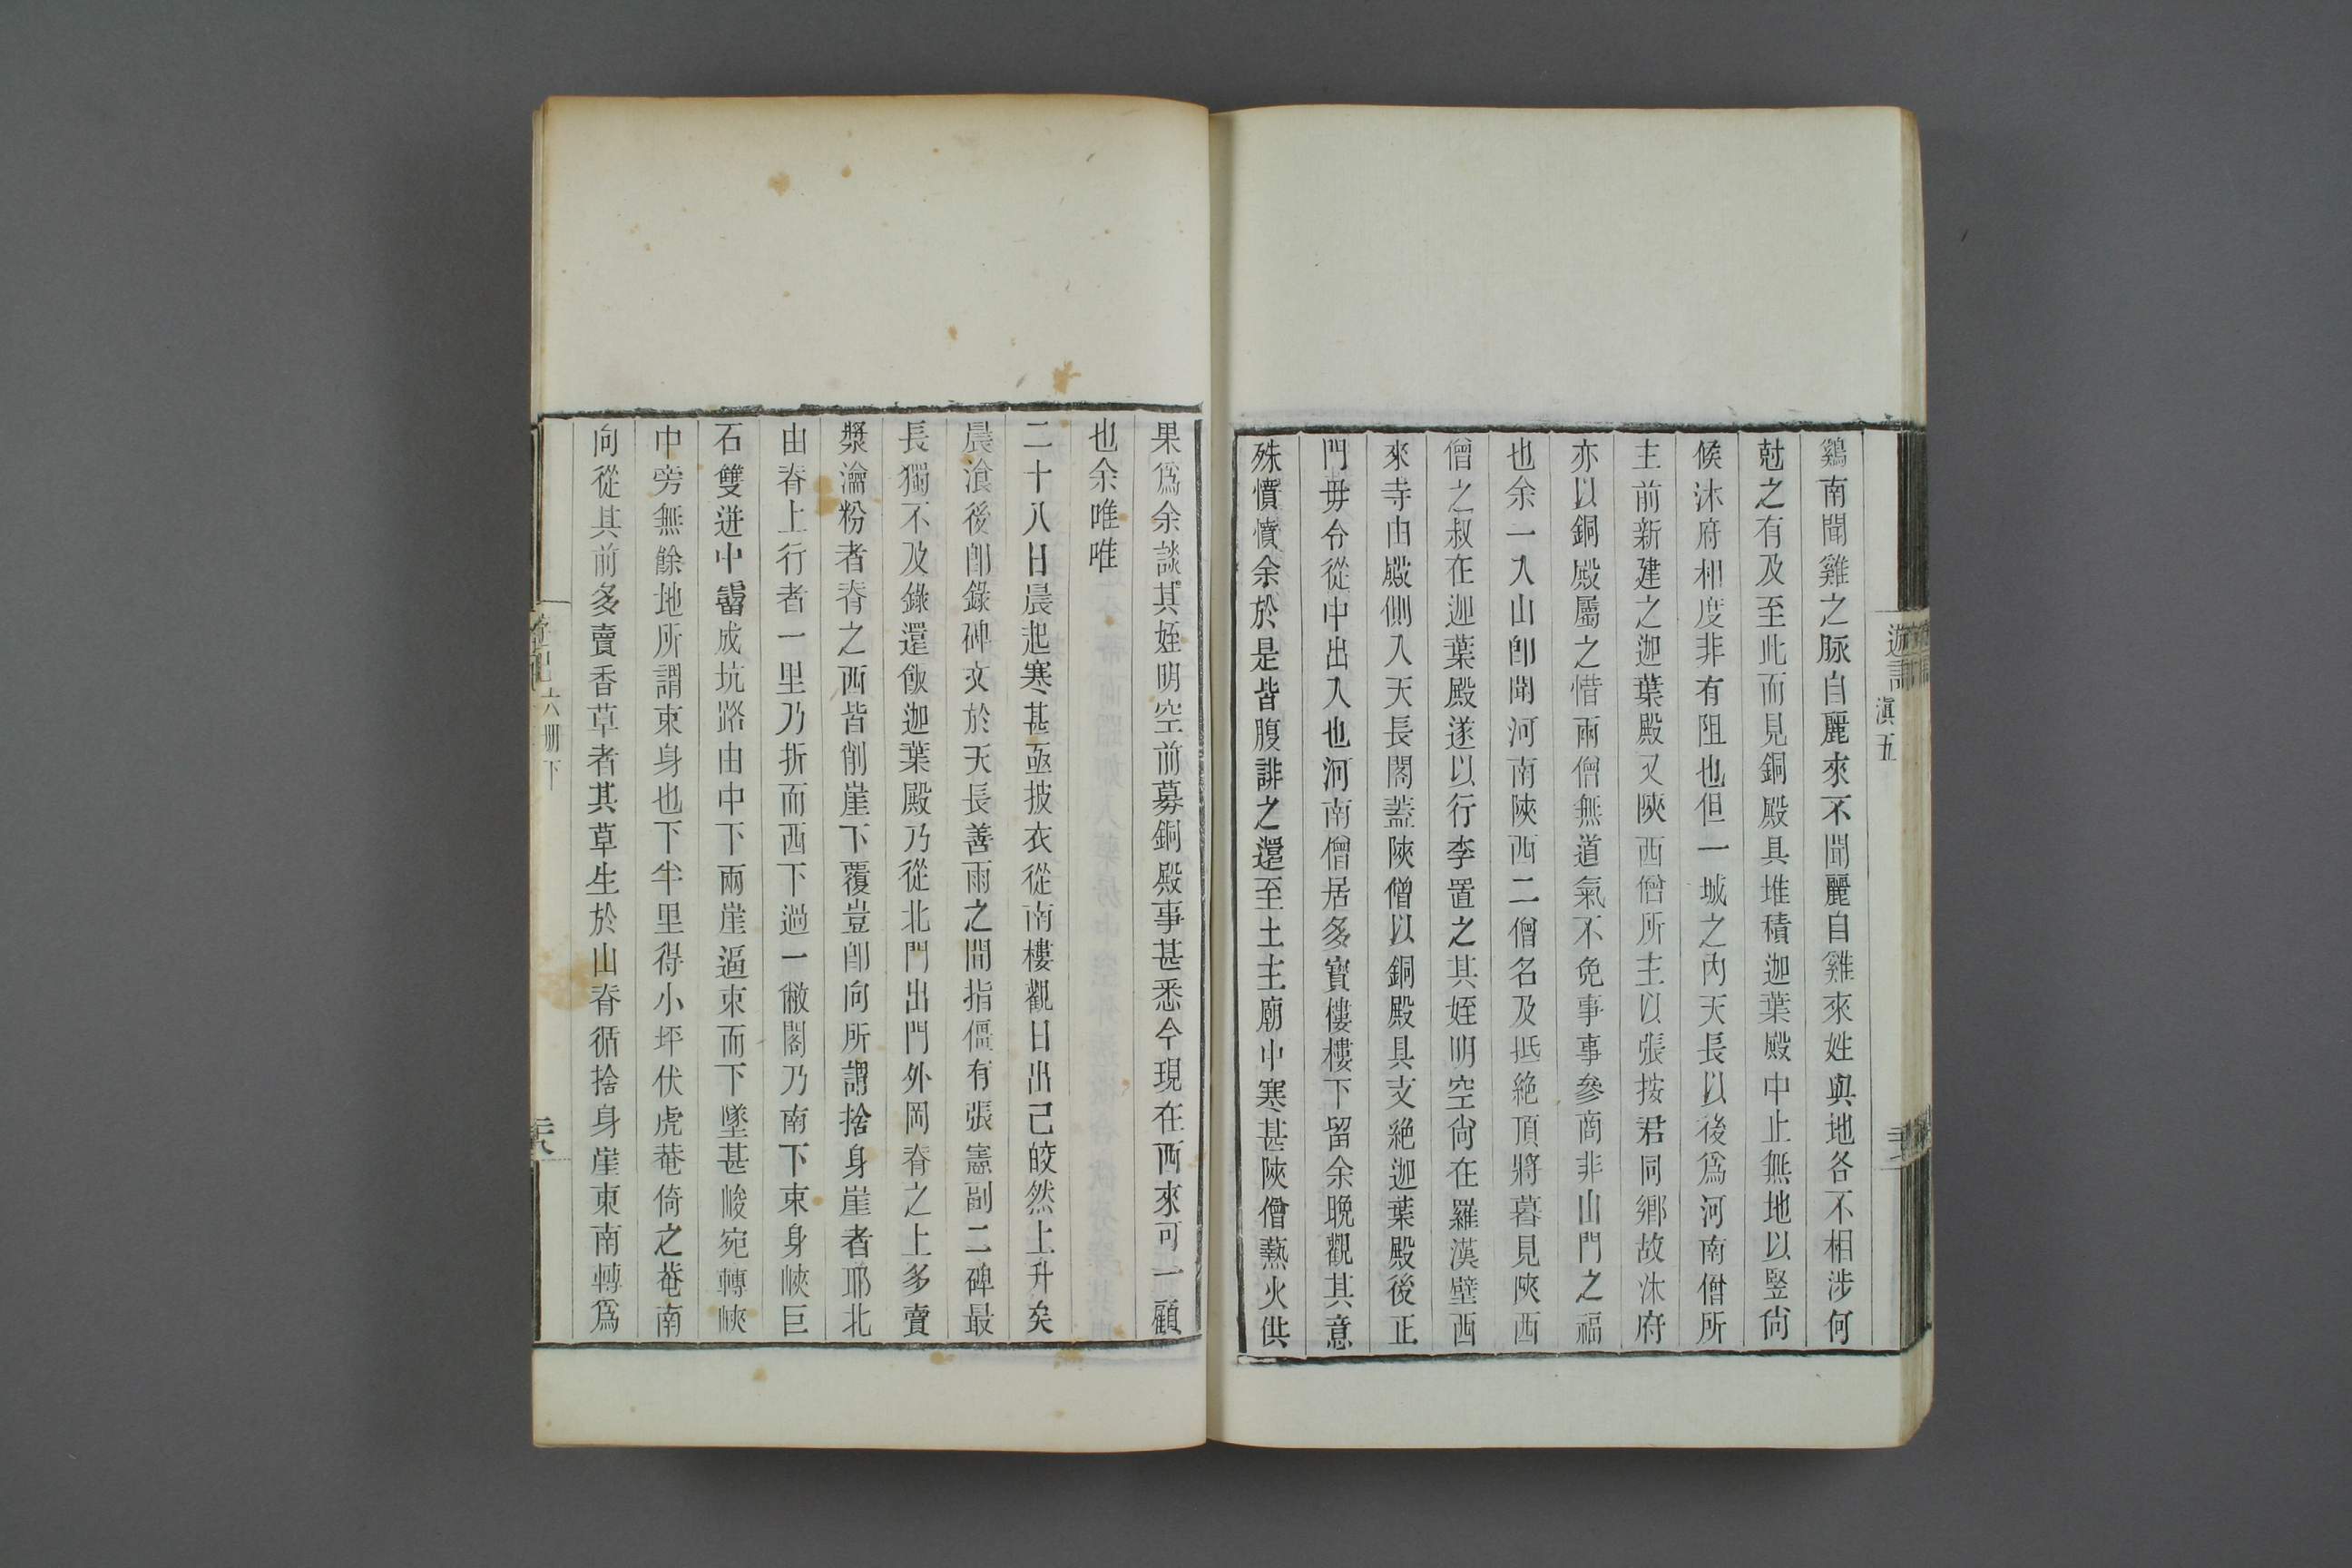 鷄南聞雞之脉自麗來不聞麗自雞來姓與地各不相涉何
尅之有及至此而見銅殿具堆積迦葉殿中止無地以竪尙
候沐府相度非有阻也但一城之內天長以後爲河南僧所
主前新建之迦葉殿又陝西僧所主以張按君同鄉故沐府
亦以銅殿屬之惜兩僧無道氣不免事事參商非山門之福
也余一入山卽聞河南陝西二僧名及抵絶頂將暮見陝西
僧之叔在迦葉殿遂以行李置之其姪明空尙在羅漢壁西
來寺由殿側入天長閣葢陝僧以銅殿具支絶迦葉殿後正
門毋令從中出入也河南僧居多寳樓樓下留余晚觀其意
殊憤憤余於是皆腹誹之還至土主廟中寒甚陝僧爇火供
遊記
滇五
果爲余談其姪明空前募銅殿事甚悉今現在西來可一顧
也余唯唯
二十八日晨起寒甚亟披衣從南樓觀日出已皎然上升矣
晨飡後卽錄碑文於天長善雨之間指僵有張憲副二碑最
長獨不及錄還飯迦葉殿乃從北門出門外岡脊之上多賣
漿瀹粉者脊之西皆削崖下覆豈卽向所謂捨身崖者耶北
由脊上行者一里乃折而西下過一敝閣乃南下束身峽巨
石雙迸中霤成坑路由中下兩崖逼束而下墜甚峻宛轉峽
中旁無餘地所謂束身也下半里得小坪伏虎菴倚之菴南
向從其前多賣香草者其草生於山脊循捨身崖東南轉爲
六册下